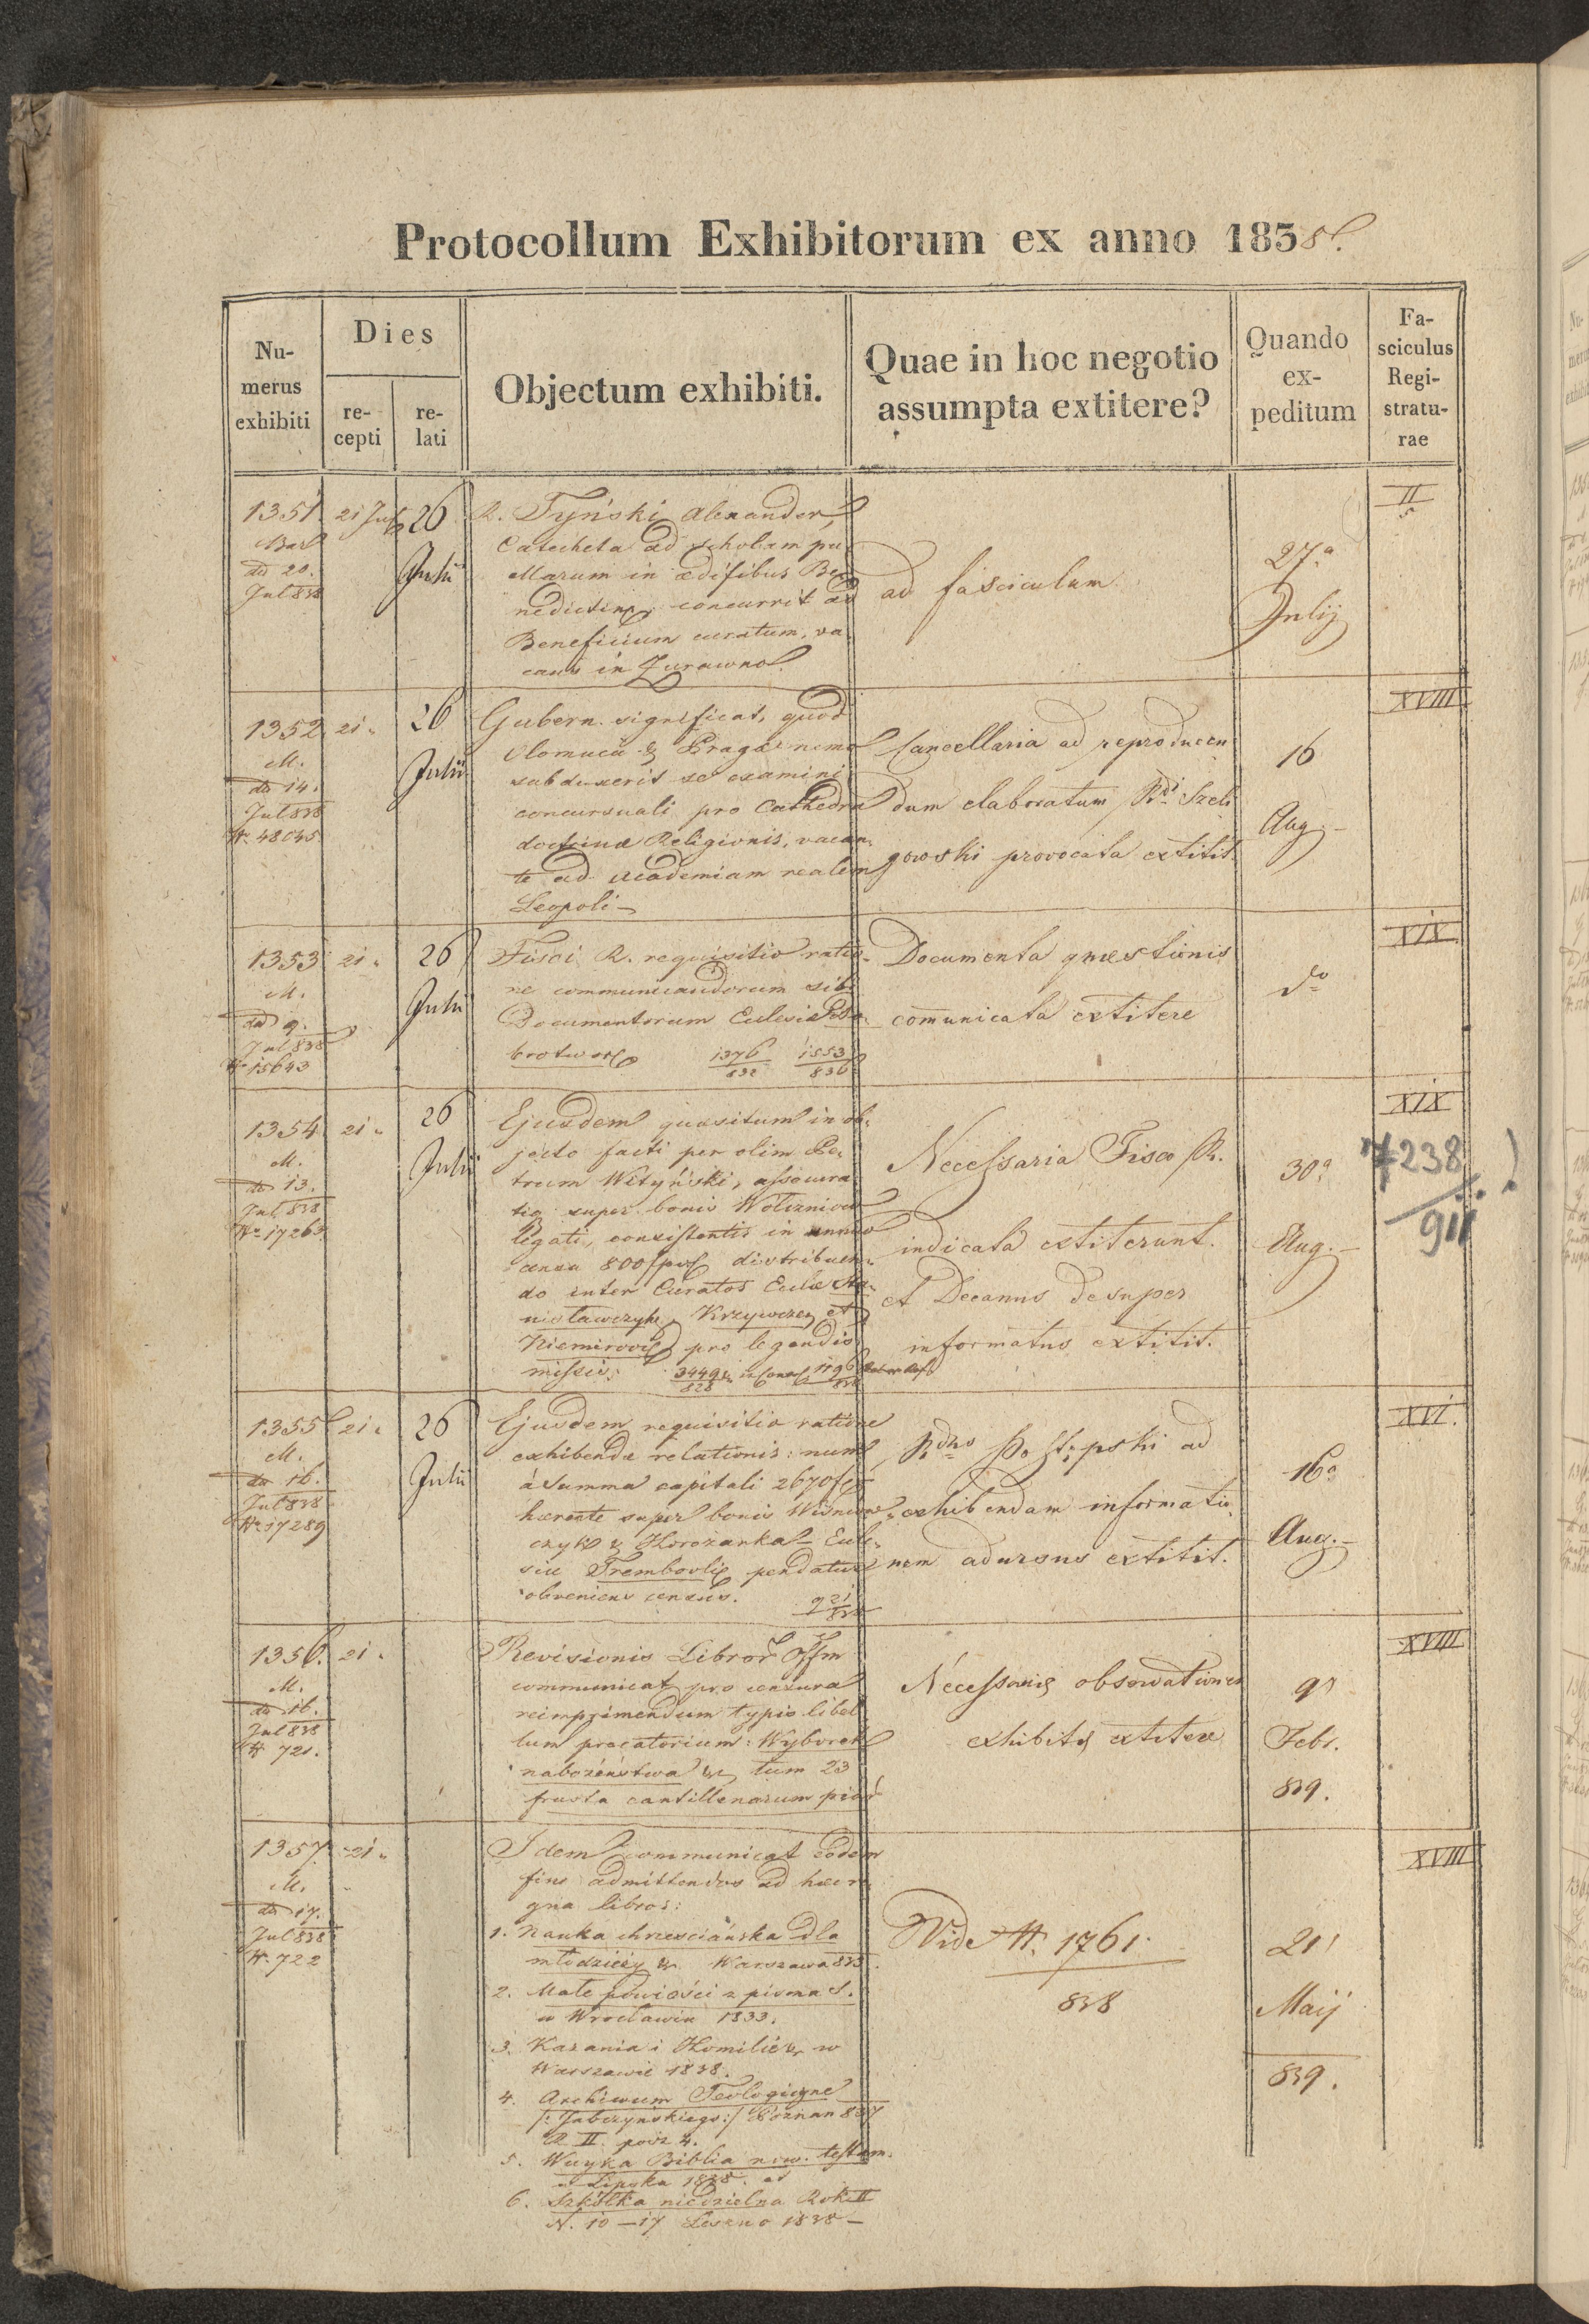 Protocollum Exhibitorum ex anno 1838.
Nu-
merus
exhibiti
Dies
re-
cepti
re-
lati
Objectum exhibiti.
Quae in hoc negotio
assumpta extitere?
Quando
ex-
peditum
Fa-
sciculus
Regi-
stratu-
rae
1351.
dto 20.
Jul 838
21 Julij
26
Julii
R. Tyński Alexander,
Catecheta ad scholam pu
ellarum in ædifibus Be
nedictinę, concurrit ad
Beneficium curatum, va
cans in Żurawno.
ad fasciculum
27a
Julij
II
1352
M.
dto 14.
Jul 838
N. 48045
21 "
26
Julii
Gubern. significat, quod
Olomucii & Pragæ nemo
subduxerit se examini
concursuali pro Cathedra
doctrinæ Religionis, vacan-
te ad Academiam realem
Leopoli –
Cancellaria ad reproducen
dum elaboratum Rdi Szeli
gowski provocata extitit.
16
Aug. –
XVIII
1353
M.
dto 9.
Jul 838
N. 15643
21 "
26
Julii
Fisci R. requisitio ratio-
ne communicandorum sibi
Documentorum Eclesiæ
1376/832 1553/836
Documenta quæstionis
com̄unicata extitere
do
XIX.
1354
M.
dto 13.
Jul 838
N. 17263
21 "
26
Julii
Ejusdem quæsitum in ob-
jecto facti per olim Pe-
trum Wityński, assecura
tio super bonis
legati, consistentis in annuo
censu 800 distribuen-
do inter Curatos Ecclæ Sta-
nisławczyk, Krzywcze, et
Niemirow pro legendis
missis.
3449/828 1196/838
Necessaria Fisco R.
indicata extiterunt.
et Decanus desuper
informatus extitit.
30a
Aug. –
XIX
7238
911
1355
M.
dto 16.
Jul 838
N. 17289
21 "
26
Julii
Ejusdem requisitio ratione
exhibendæ relationis: num
á summa capitali 2670
hærente super bonis Wiśniow-
czyk & Horożanka Eccle-
siæ Trembovlę pendatur
obveniens census.
921/838
Rdus ad
exhibendam informatio-
nem adursus extitit.
16a
Aug. –
XVI.
1356.
M.
dto 16.
Jul 838
N. 721.
21 "
Revisionis Libror Off̄m
communicat pro censura
reimprimendum typis libel
lum precatorium: Wyborek
nabożeństwa & tum 23
frusta cantillenarum piar
Necessarię observationes
exhibitę extitere
9a
Febr.
839.
XVIII
1357
M.
dto 17.
Jul 838
N. 722
21 "
Idem communicat eodem
fine admittendos ad hæc re-
gna libros:
1. Nauka chrześciańska dla
młodzieży & Warszawa 833.
2. Małe powieści z pisma S.
w Wrocławiu 1833.
3. Kazania i Homilie & w
Warszawie 1838.
4. Archiwum Teologiczne
/: Jabczyńskiego :/ Poznan 837
R II. posz 4.
5. Wuyka Biblia now. testam.
w Lipsku 1838.
6. Szkółka niedzielna Rok II
N. 10 – 17 Leszno 1838 –
Vide N. 1761
838
21
Maij
839.
XVIII